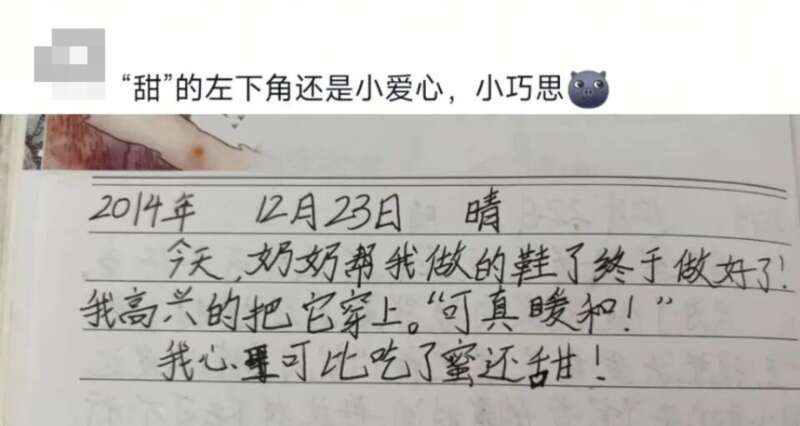 “甜”的左下角还是小爱心，小巧思
2014年 12月23日 晴
今天，奶奶帮我做的鞋了终于做好了！
我高兴的把它穿上。“可真暖和！”
我心里可比吃了蜜还甜！